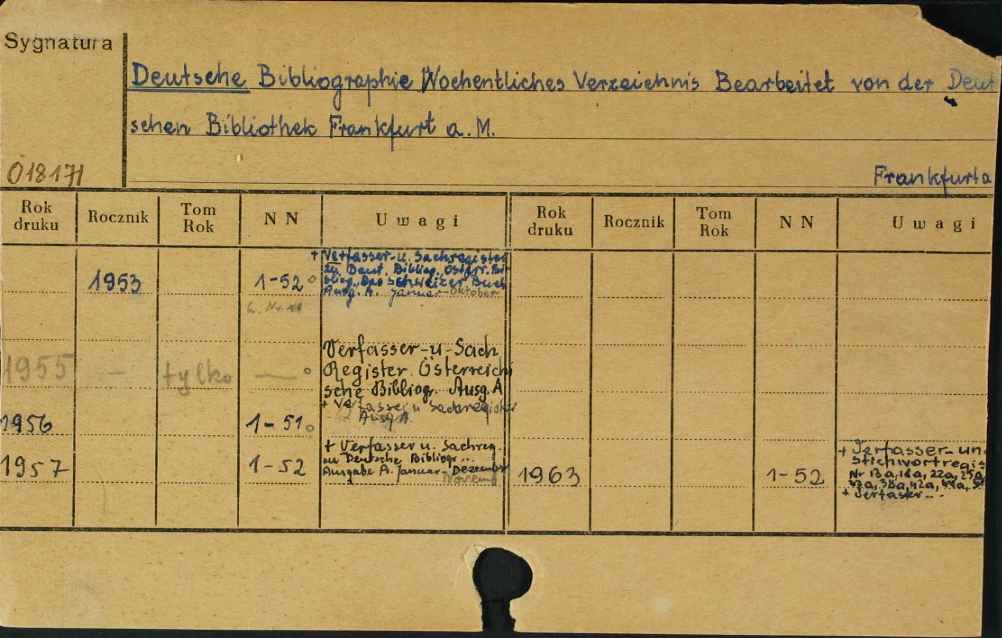 Sygnatura
Deutsche Bibliographie Wochentliches Verzeichnis Bearbeitet von der Deut
schen Bibliothek Frankfurt a. M.
018171
Frankfurt a
Rok druku Rocznik Tom Rok NN Uwagi Rok druku Rocznik Tom Rok NN Uwagi
1953 1-52
+ Verfasser-u. Sachregister
zu Deut. Bibliog. Österr. Bi
bliog. Das Schweizer Buch
Ausg. A. Januar-Oktober
1955 - tylko -
Verfasser-u-Sach
Register. Österreichi
sche Bibliogr. Ausg. A
+ Verfasser u Sachregister
Ausg A.
1956 1-51
1957 1-52
+ Verfasser u. Sachreg.
zu Deutsche Bibliogr...
Ausgabe A. Januar-Dezember
Novemb
1963 1-52
+ Verfasser-un
Stichwortregis
Nr 13a, 18a, 22a, 25a
38a, 42a,
+ Verfasser...